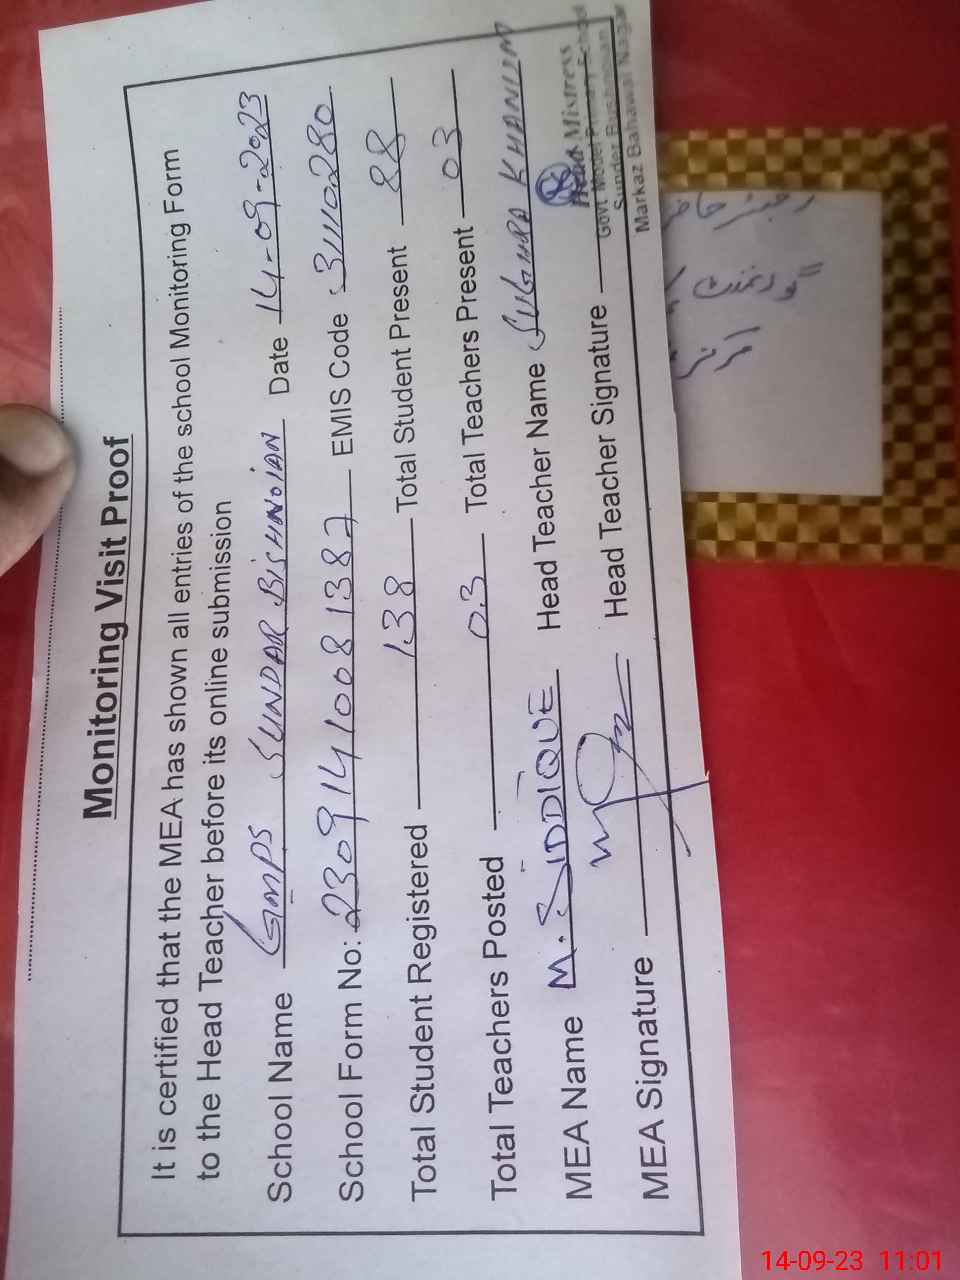 Monitoring Visit Proof
It is certified that the MEA has shown all entries of the school Monitoring Form
to the Head Teacher before its online submission
School Name GMPS SUNDAR BISHNOIAN Date 14-09-2023
School Form No: 23091410081387 EMIS Code 31110280
Total Student Registered 138 Total Student Present 88
Total Teachers Posted 03 Total Teachers Present 03
MEA Name M. SIDDIQUE Head Teacher Name SUGHRA KHANUM
MEA Signature Head Teacher Signature
Head Mistress
Govt Model Primary School
Sunder Bushnoian
Markaz Bahawal Nagar
گورنمنٹ
14-09-23 11:01